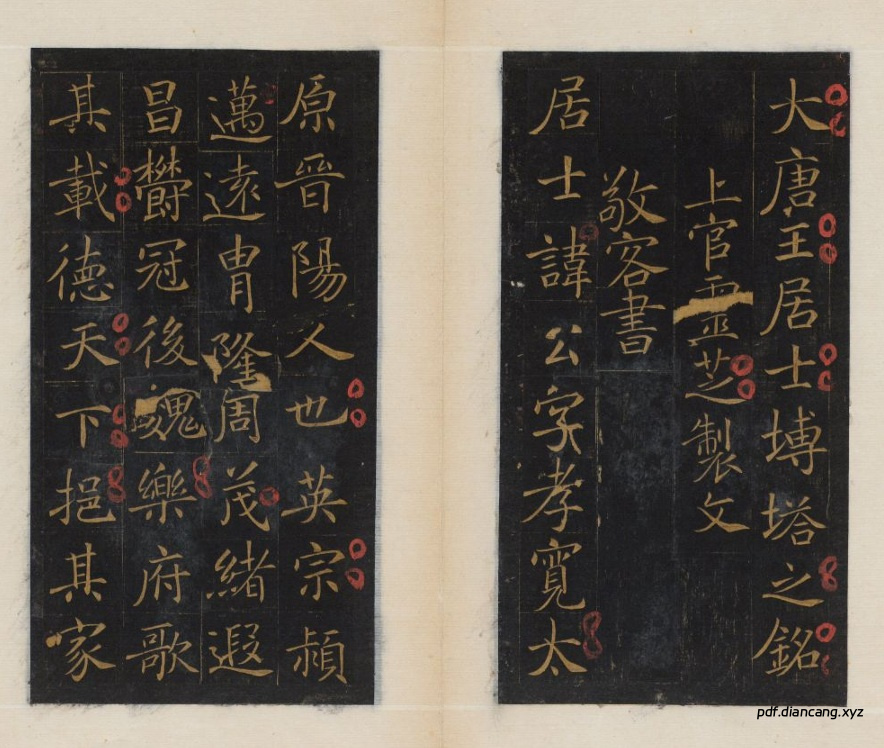 大唐王居士塼塔之銘
上官靈芝製文
敬客書
居士諱公字孝寬太
原晉陽人也英宗頠
邁遠胄隆周茂緒遐
昌欝冠後魏樂府歌
其載德天下挹其家
pdf.diancang.xyz